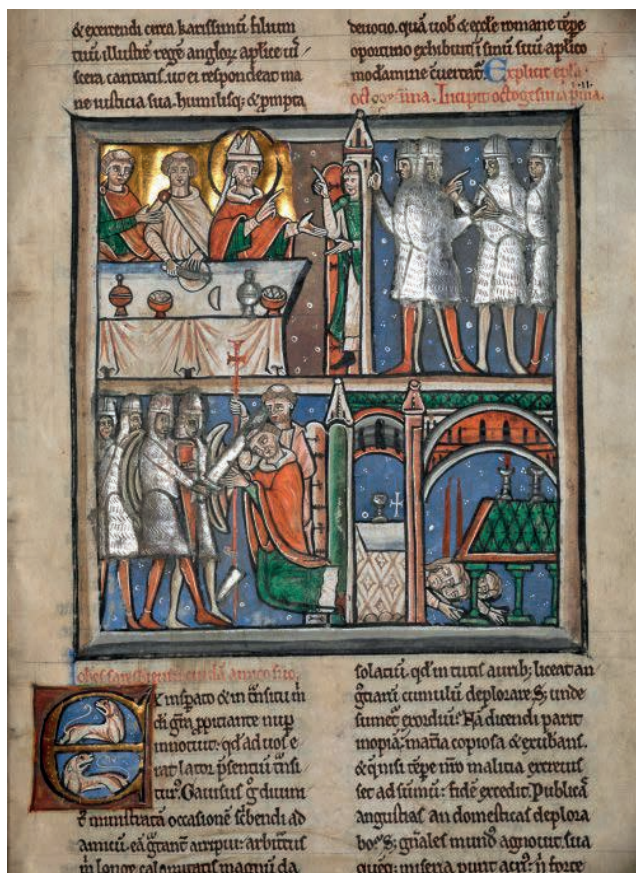 & exercendi circa karissimum filium
tuū illustrē regē angloꝝ aplice ui
scera caritatis. ut ei respondeat ma
ne iusticia sua humilisq; & prompta
deuotio. quā uob & eccle romane tēpe
oportuno exhibuit
Explicit epla
Incipit octogesima prima.
cuidā amico suo.
Ex insperato & in trāsitu m
di gra ppitiante nup
innotuit. qd ad uos e
rat lator psentiū trāsi
Gauisus g diuini
ministrata occasione scbendi ad
amicū. ea arripui: arbitratus
n longe calamitatis magnū da
solatiū. qd in tutis aurib; liceat an
gtiarū cumulū deplorare. S; unde
sumet exordiū? Nā dicendi parit
inopiā: matia copiosa & exubans.
& q nisi tēpe nro malitia excreuis
set ad sumū: fidē excedit. Publicā
angustias an domesticas deplora
bo? S; gnales mund agnouit. sua
queq; miseria